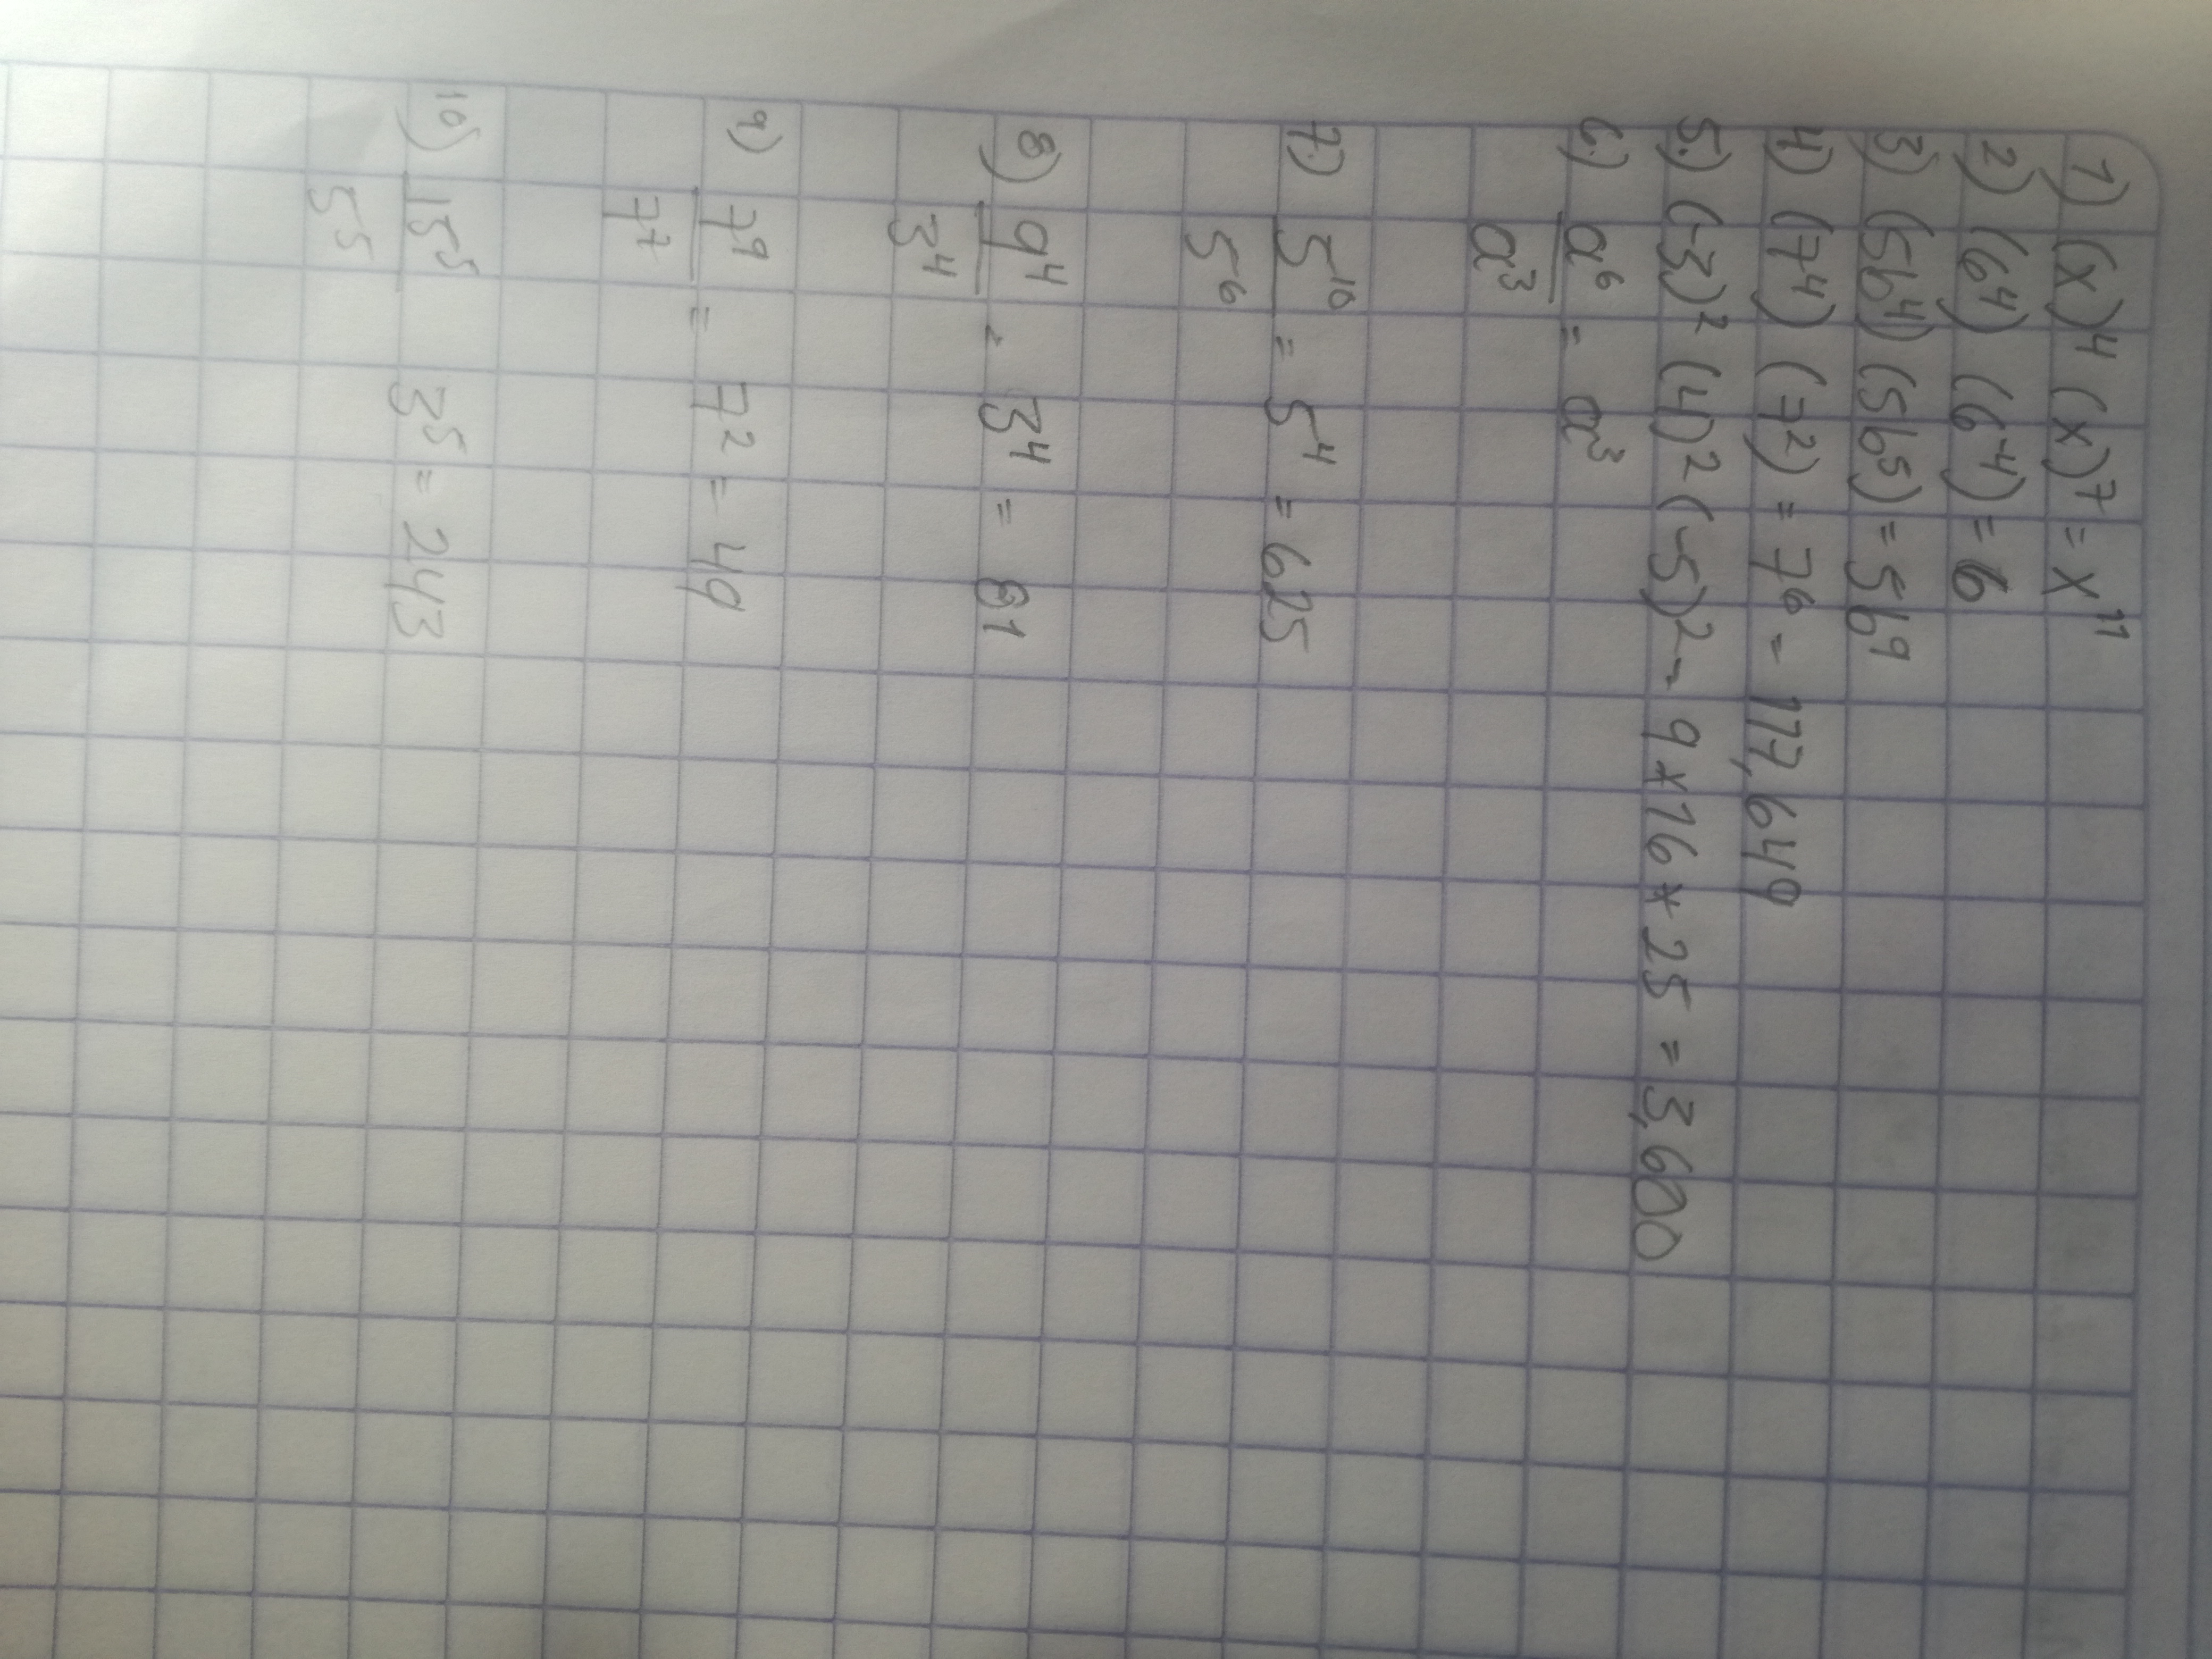 1) (x)⁴ (x)⁷ = x¹¹
2) (6⁴) (6⁻⁴) = 6
3) (5b⁴) (5b⁵) = 5b⁹
4) (7⁴) (7²) = 7⁶ = 117,649
5.) (-3)² (4)² (-5)² = 9 * 16 * 25 = 3,600
6.) a⁶ = a³
a³
7.) 5¹⁰ = 5⁴ = 625
5⁶
8) 9⁴ = 3⁴ = 81
3⁴
9) 7⁹ = 7² = 49
7⁷
10) 15⁵ 3⁵ = 243
5⁵